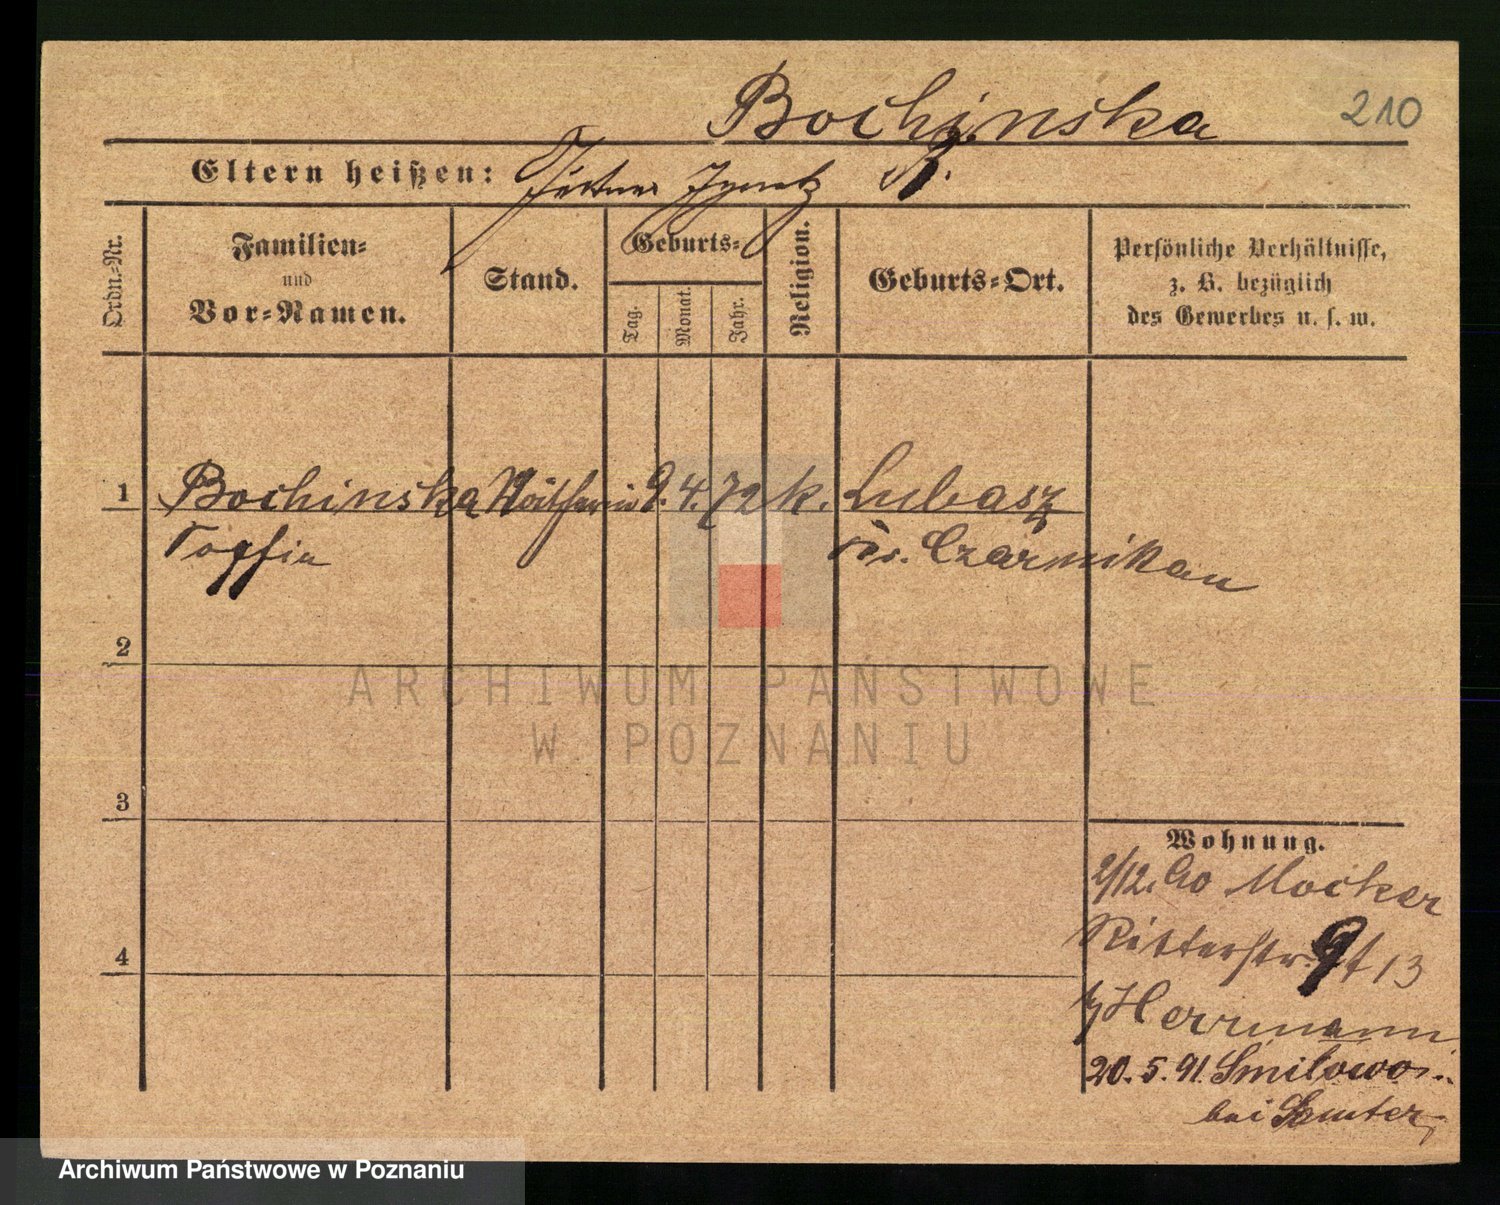 Bochinska 210
Eltern heißen: Ignatz
Ordn.-Nr.
Familien-
und
Vor-Namen.
Stand.
Geburts-
Tag.
Monat.
Jahr.
Religion.
Geburts-Ort.
Persönliche Verhältnisse,
z. B. bezüglich
des Gewerbes u. s. w.
1 Bochinska 9. 4. 72 k. Lubasz
Sophia Czarnikau
2
ARCHIWUM PAŃSTWOWE
W POZNANIU
3
4
Wohnung.
2/12. 90 Mocker
Ritterstr. 13
b/ Herrmann
20. 5. 91. Smilowo
bei Samter
Archiwum Państwowe w Poznaniu